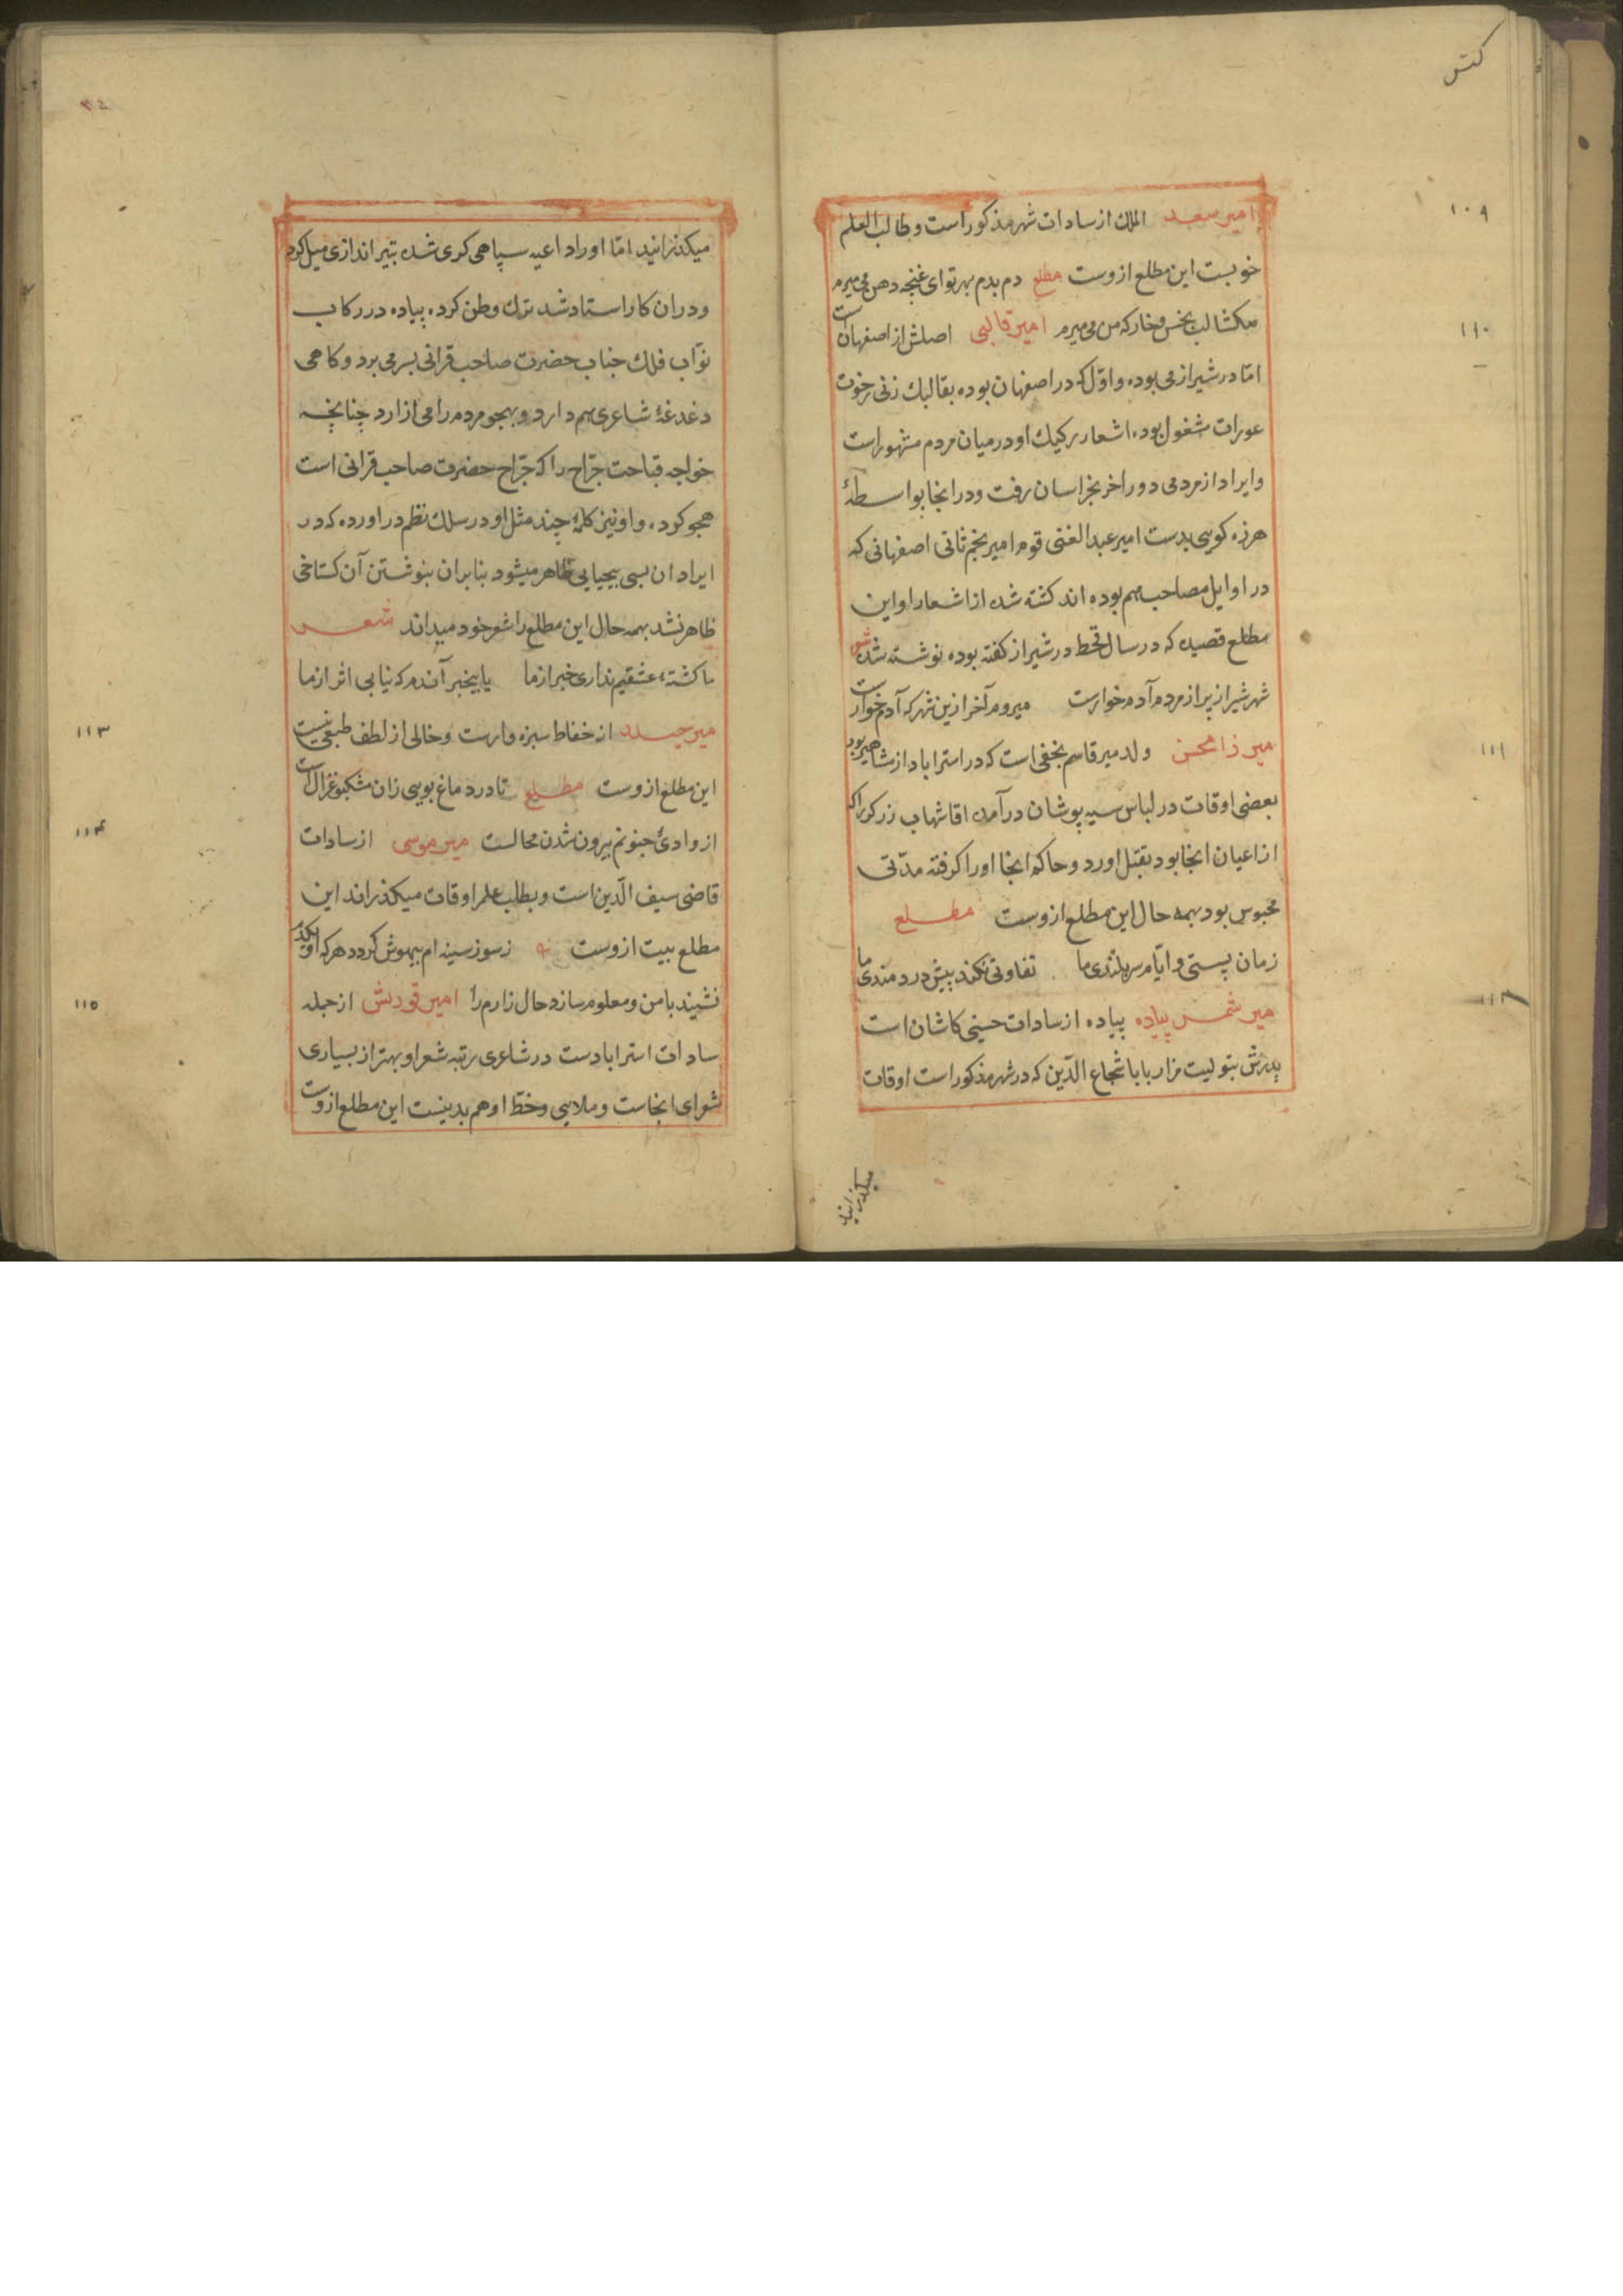 ۱۰۹
امیر سعد الملك از سادات شهر مذکور است و طالب العلم
خوبست این مطلع ازوست مطلع دم بدم بهر تو ای غنچه دهن می میرم
مکشا لب بخس و خار که من می میرم امیر قالبی اصلش از اصفهان است
۱۱۰
اما در شیراز می بوده و اوّل که در اصفهان بوده بقالبك زنی رخوت
عورات مشغول بوده اشعار رکیك او در میان مردم مشهور است
و ایراد از مردمی دور اخر بخراسان رفت و در انجا بواسطهٔ
هرزه کویی بدست امیر عبد الغنی قوم امیر نجم ثانی اصفهانی که
در اوایل مصاحب هم بوده اند کشته شد از اشعار او این
مطلع قصیده که در سال قحط در شیراز کفته بوده نوشته شد شعر
شهر شیراز پر از مردم آدم خوارست میروم آخر ازین شهر که آدم خوارست
میرزا محسن ولد میر قاسم نجفی است که در استراباد از مشاهیر بود
۱۱۱
بعضی اوقات در لباس سیه پوشان در آمده اقا شهاب زرکر را که
از اعیان انجا بود بقتل اورد و حاکم انجا او را کرفته مدّتی
محبوس بود بهمه حال این مطلع ازوست مطلع
زمان پستی و ایّام سربلندی ما تفاوتی نکند پیش دردمندی ما
میر شمس پیاده پیاده از سادات حسینی کاشان است
۱۱۲
پدرش بتولیت مزار بابا شجاع الدّین که در شهر مذکور است اوقات
میکذرانید
میکذرانید امّا او را داعیه سپاهی کری شده بتیر اندازی میل کرد
و در ان کار استاد شد ترك وطن کرده پیاده در رکاب
نوّاب فلك جناب حضرت صاحب قرانی بسر می برد و کاهی
دغدغهٔ شاعری هم دارد و بهجو مردم را می ازارد چنانچه
خواجه قباحت جرّاح را که جرّاح حضرت صاحب قرانی است
هجو کرده و او نیز کلمهٔ چند مثل او در سلك نظم در اورده که در
ایراد ان بسی بیحیایی ظاهر میشود بنابران بنوشتن آن کستاخی
ظاهر نشد بهمه حال این مطلع را شعر خود میداند شعر
ما کشتهٔ عشقیم نداری خبر از ما یابی خبر آندم که نیابی اثر از ما
میر حیدر از حفاظ سبزه وارست و خالی از لطف طبعی نیست
۱۱۳
این مطلع ازوست مطلع تا در دماغ بویی زان مشکبو غزال است
از وادیٔ جنونم بیرون شدن محالست میر موسی از سادات
۱۱۴
قاضی سیف الّدین است و بطلب علم اوقات میکذراند این
مطلع بیت ازوست ز سوز سینه ام بیهوش کردد هر که او یکدم
نشیند با من و معلوم سازد حال زارم را امیر قوریش از جمله
۱۱۵
سادات استرابادست در شاعری رتبه شعر او بهتر از بسیاری
شعرای انجاست و ملایی و خظ او هم بد نیست این مطلع ازوست